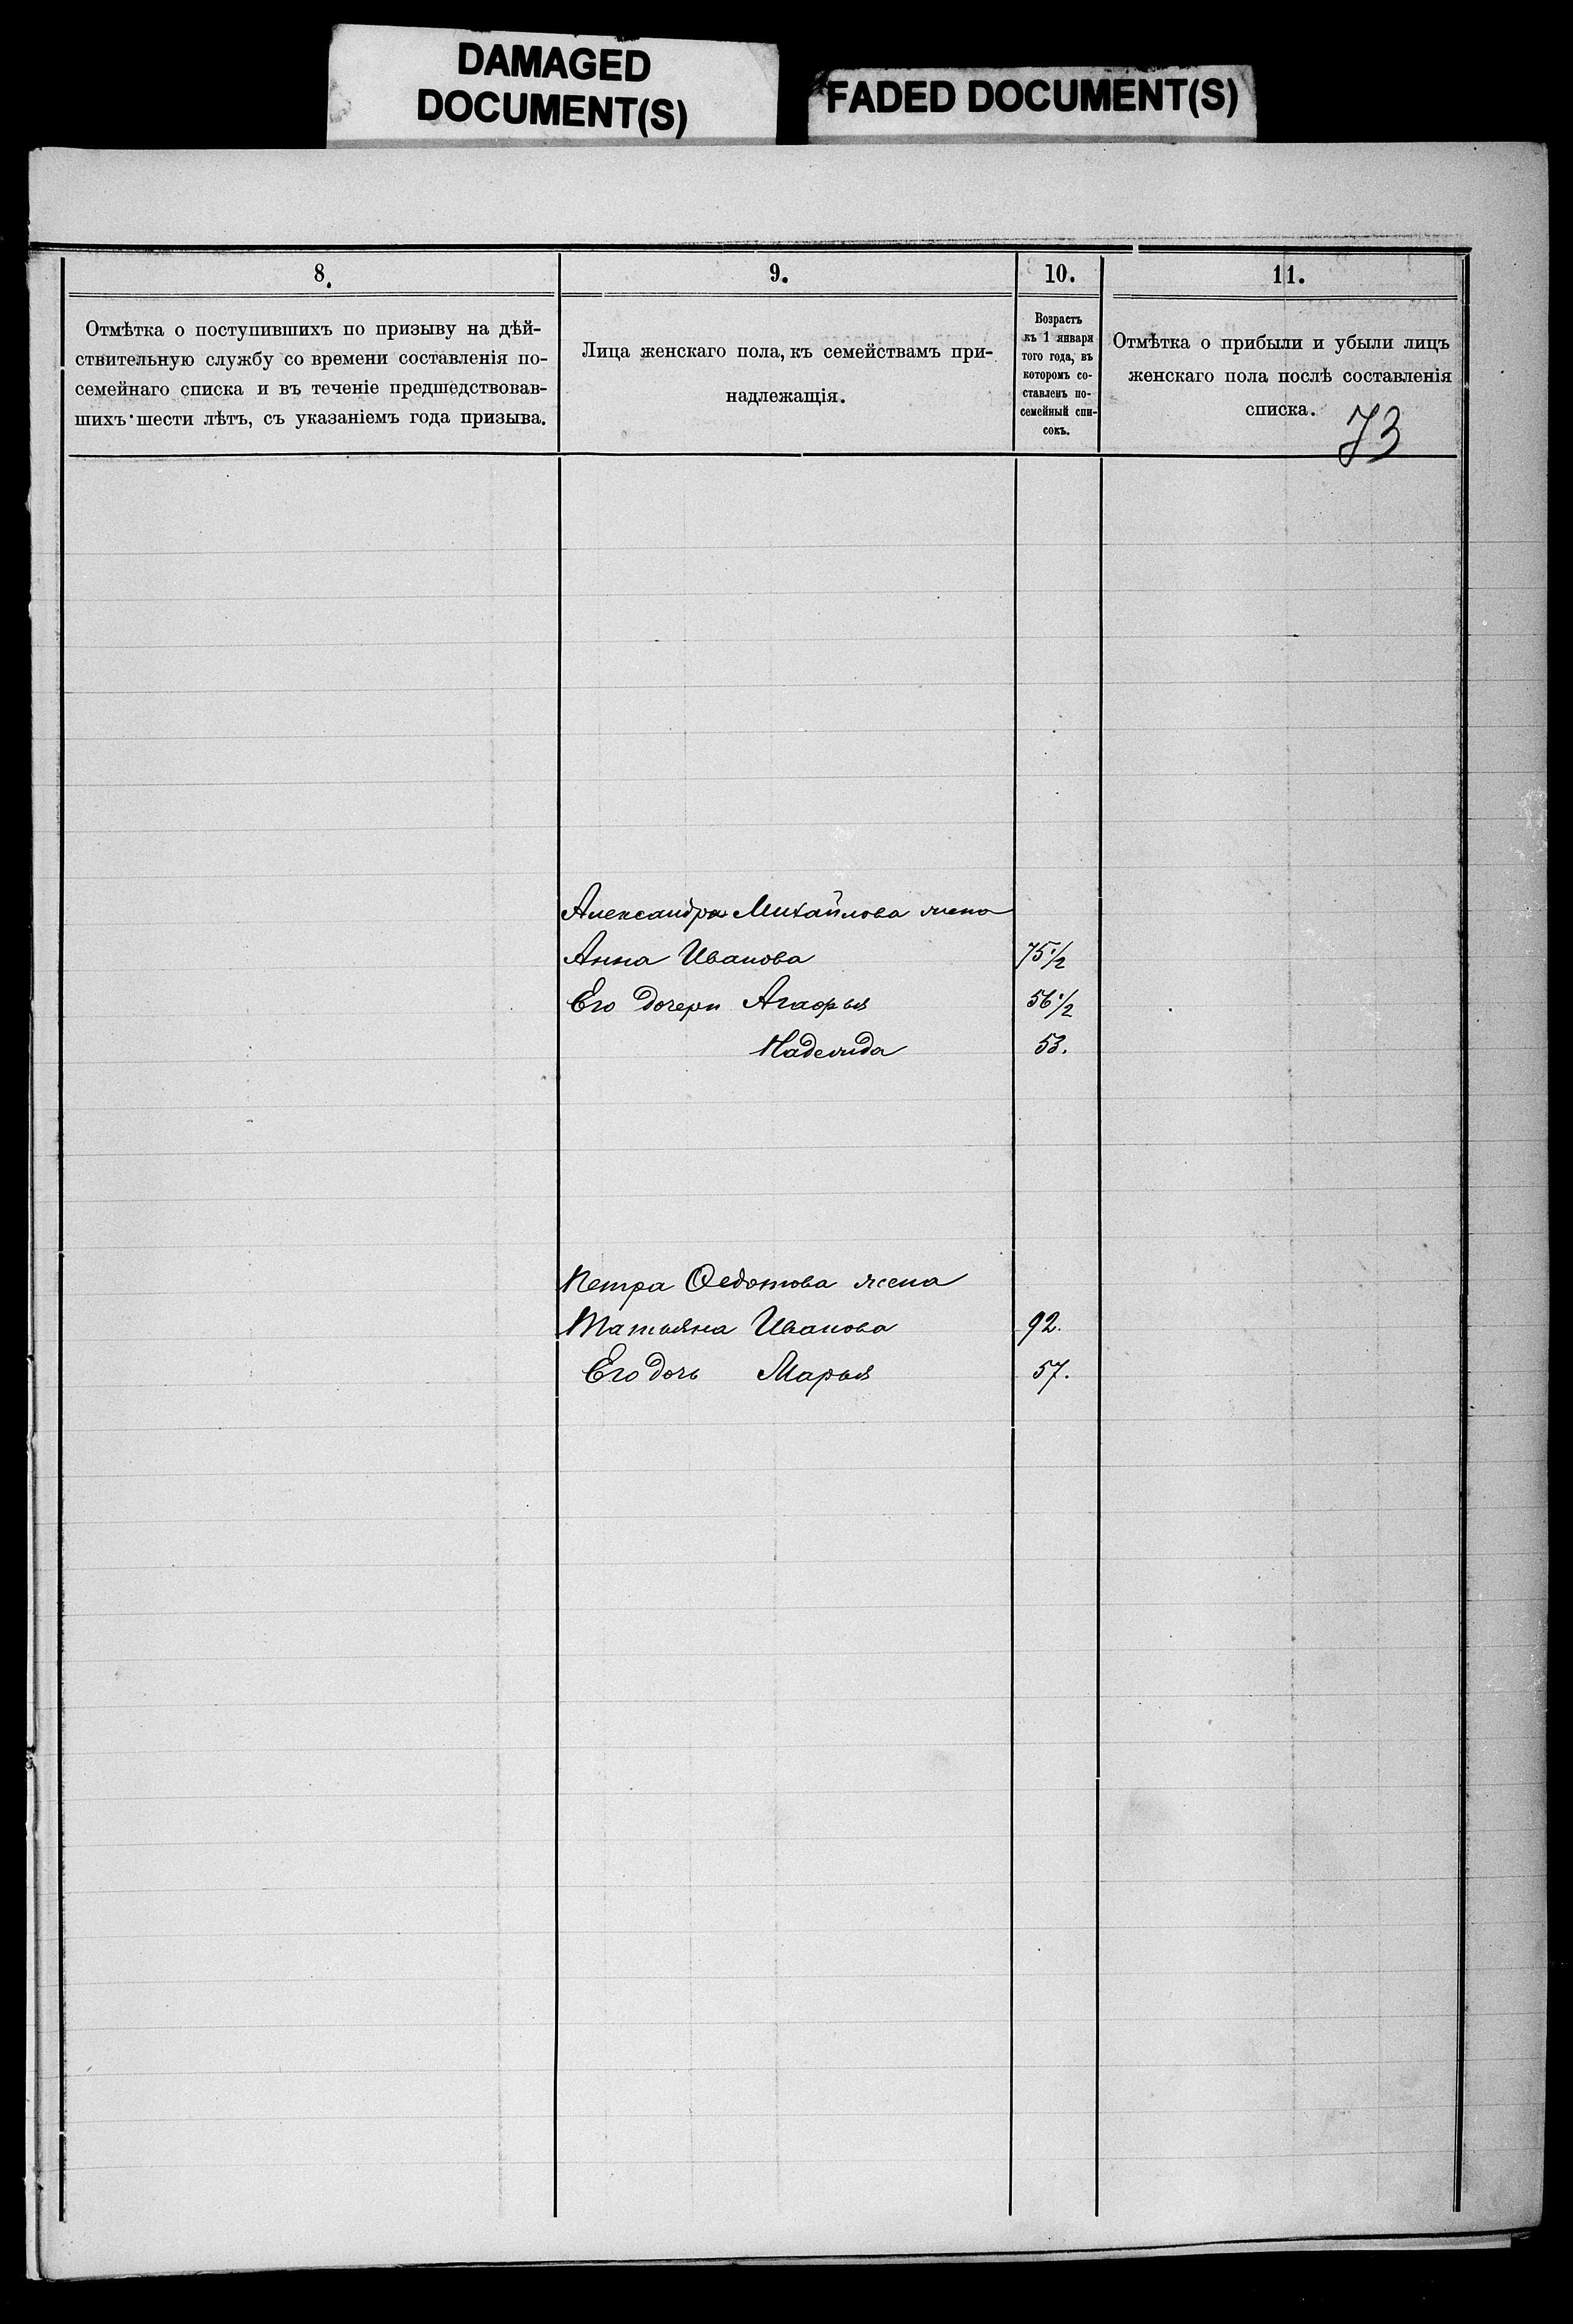 DAMAGED
DOCUMENT(S)
FADED DOCUMENT(S)
8.
Отмѣтка о поступившихъ по призыву на дѣй-
ствительную службу со времени составленія по-
семейнаго списка и въ теченіе предшедствовав-
шихъ шести лѣтъ, съ указаніемъ года призыва.
9.
Лица женскаго пола, къ семействамъ при-
надлежащія.
10.
Возрастъ
къ 1 января
того года, въ
которомъ со-
ставленъ по-
семейный спи-
сокъ.
11.
Отмѣтка о прибыли и убыли лицъ
женскаго пола послѣ составленія
списка.
73
Александра Михайлова жена
Анна Иванова 75 1/2
Его дочери Агафья 56 1/2
Надежда 53.
Петра Ѳедотова жена
Татьяна Иванова 92.
Его дочь Марья 57.